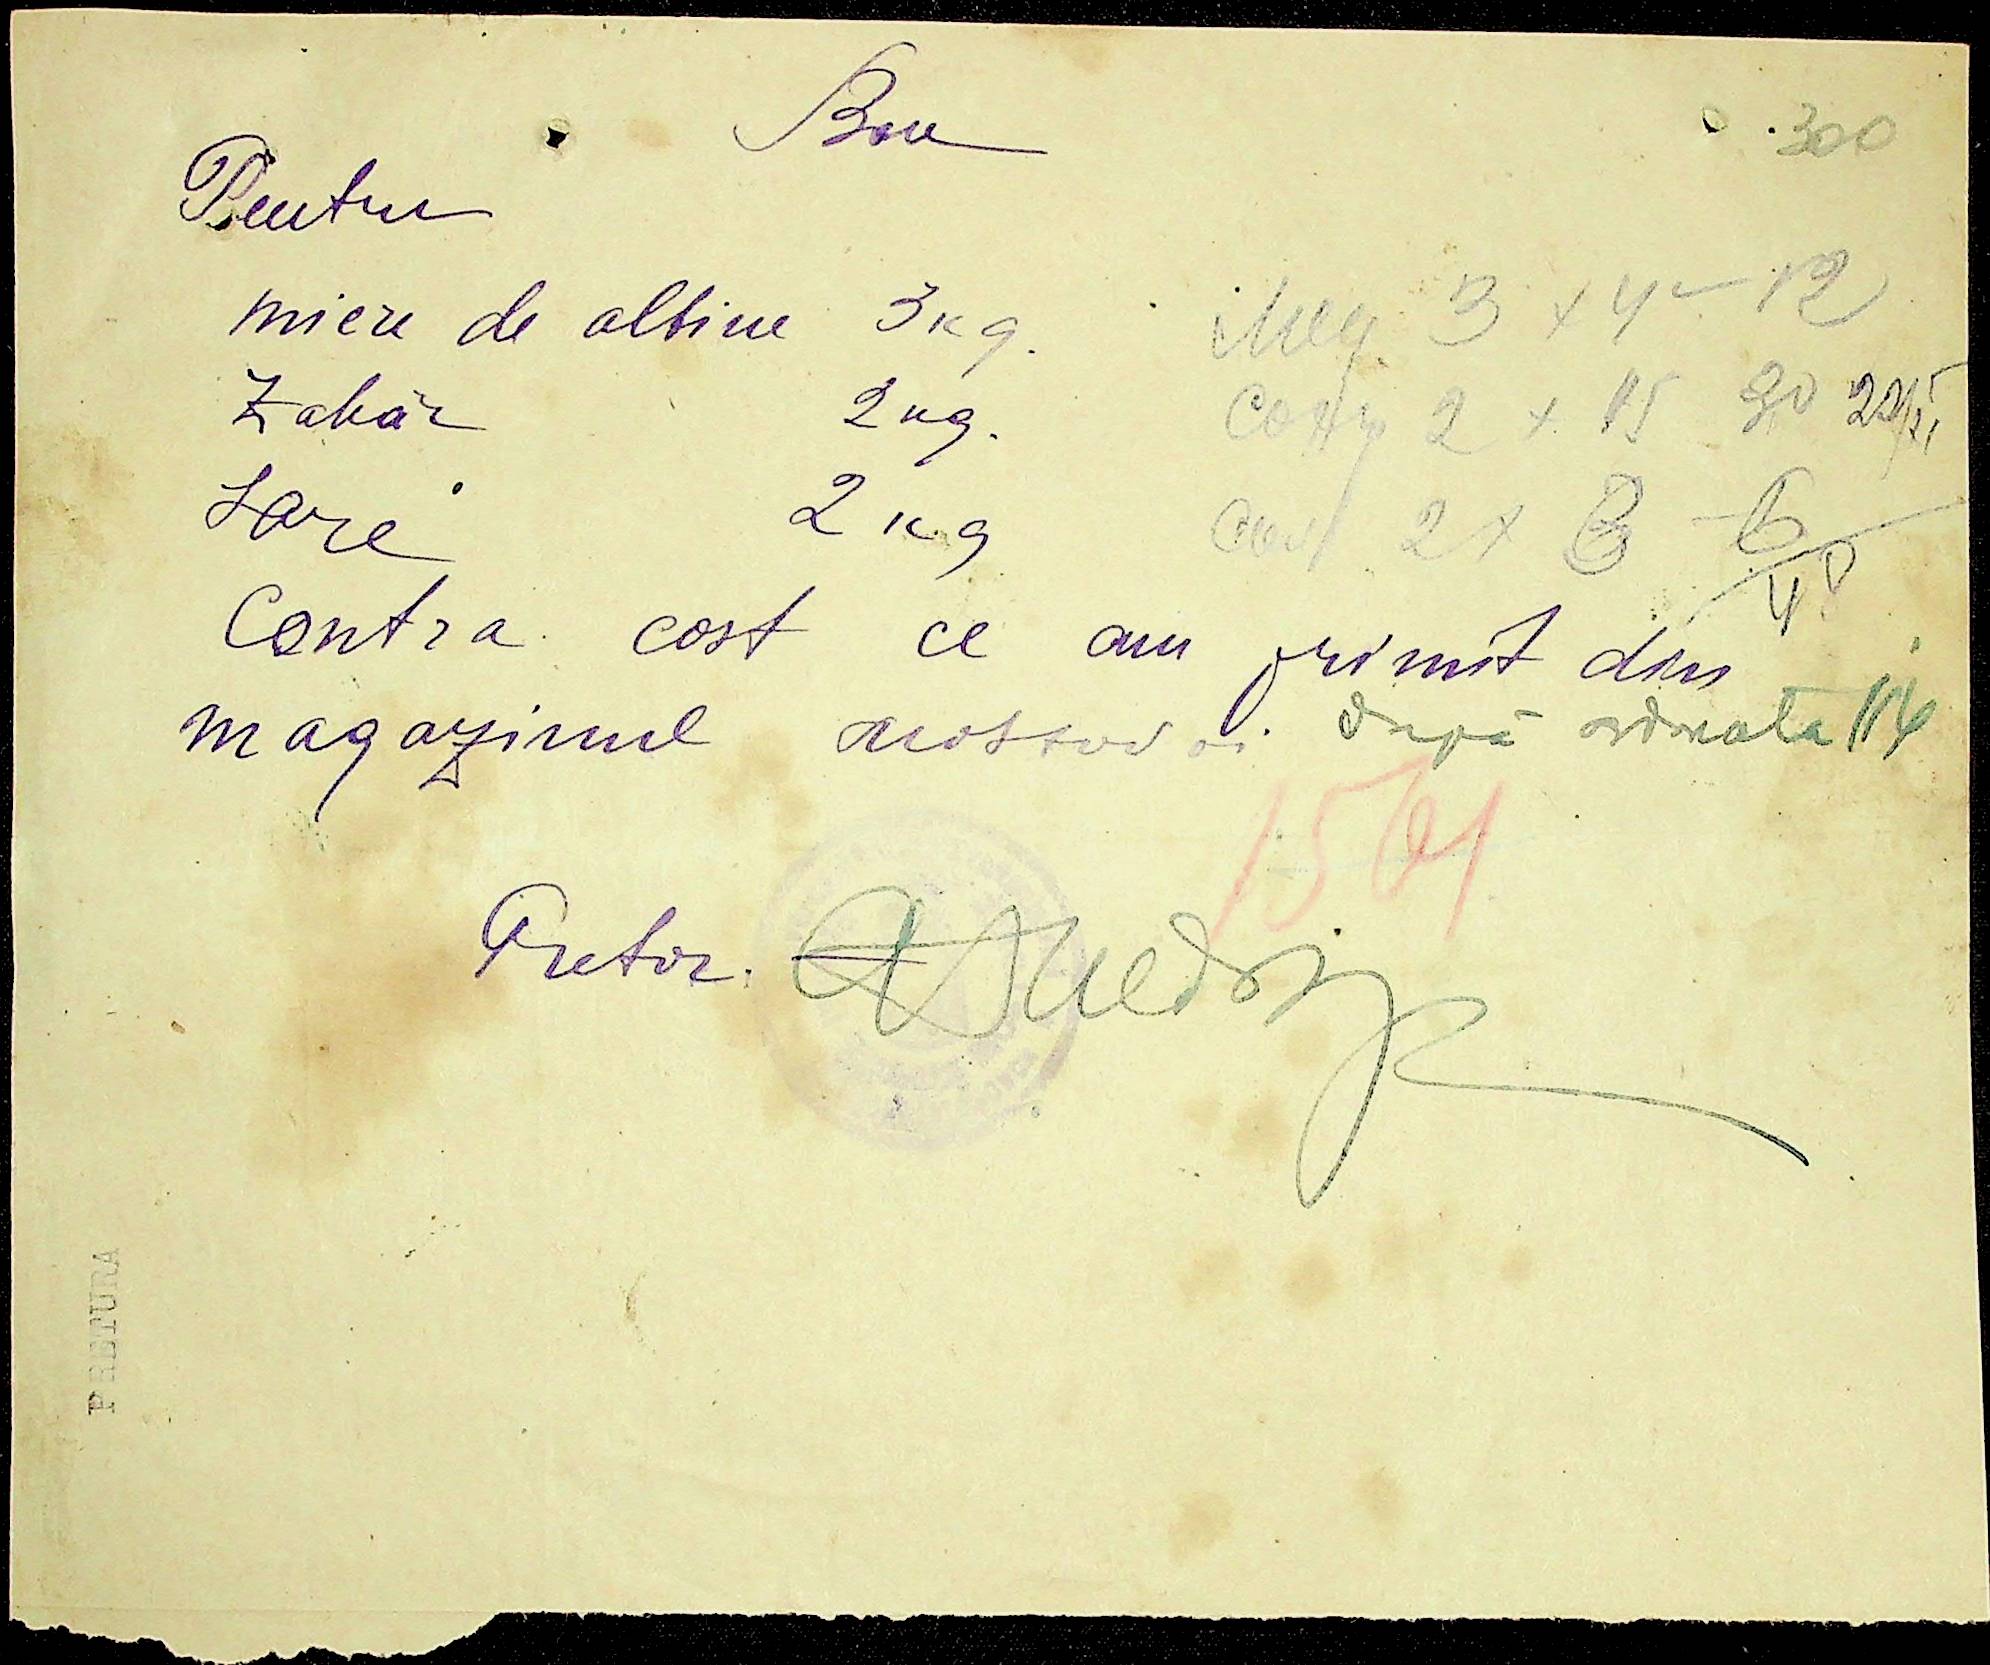 Bon
300
Pentru
miere de albine 3 kg.
3 x 4 - 12
Zahăr 2 kg.
2 x 15 30 22/XI
Sare 2 kg
2 x 3 - 6
48
Contra cost ce am primit din
magazinul după ordonata 114
1501
Pretor.
PRETURA